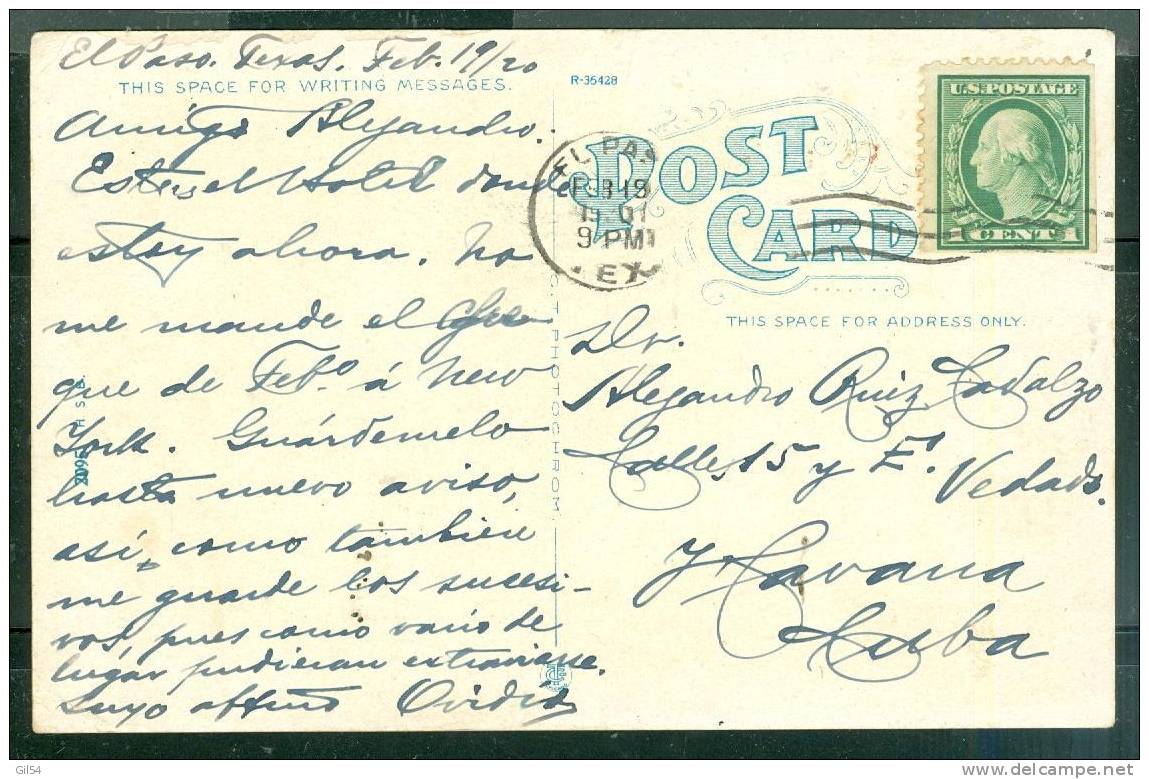 El Paso. Texas. Feb. 19/20
THIS SPACE FOR WRITING MESSAGES.
Amigo Alejandro.
Este es el Hotel donde
estoy ahora. No
me mande el
que de Feb.º á New
York. Guárdemelo
hasta nuevo aviso,
así, como tambien
me guarde los sucesi-
vos, pues como vario de
lugar pudieran extraviarse.
Suyo affmo Ovidio
R-35428
POST
CARD
U.S. POSTAGE
1 CENT 1
EL PAS
FEB 19
9 PM
EX
THIS SPACE FOR ADDRESS ONLY.
Dr.
Alejandro Ruiz Cadalzo
Calle 15 y E.
Vedado.
Havana
Cuba
C. T. PHOTOCHROM.
2095 H. S. B.
Gil54
delcampe.net